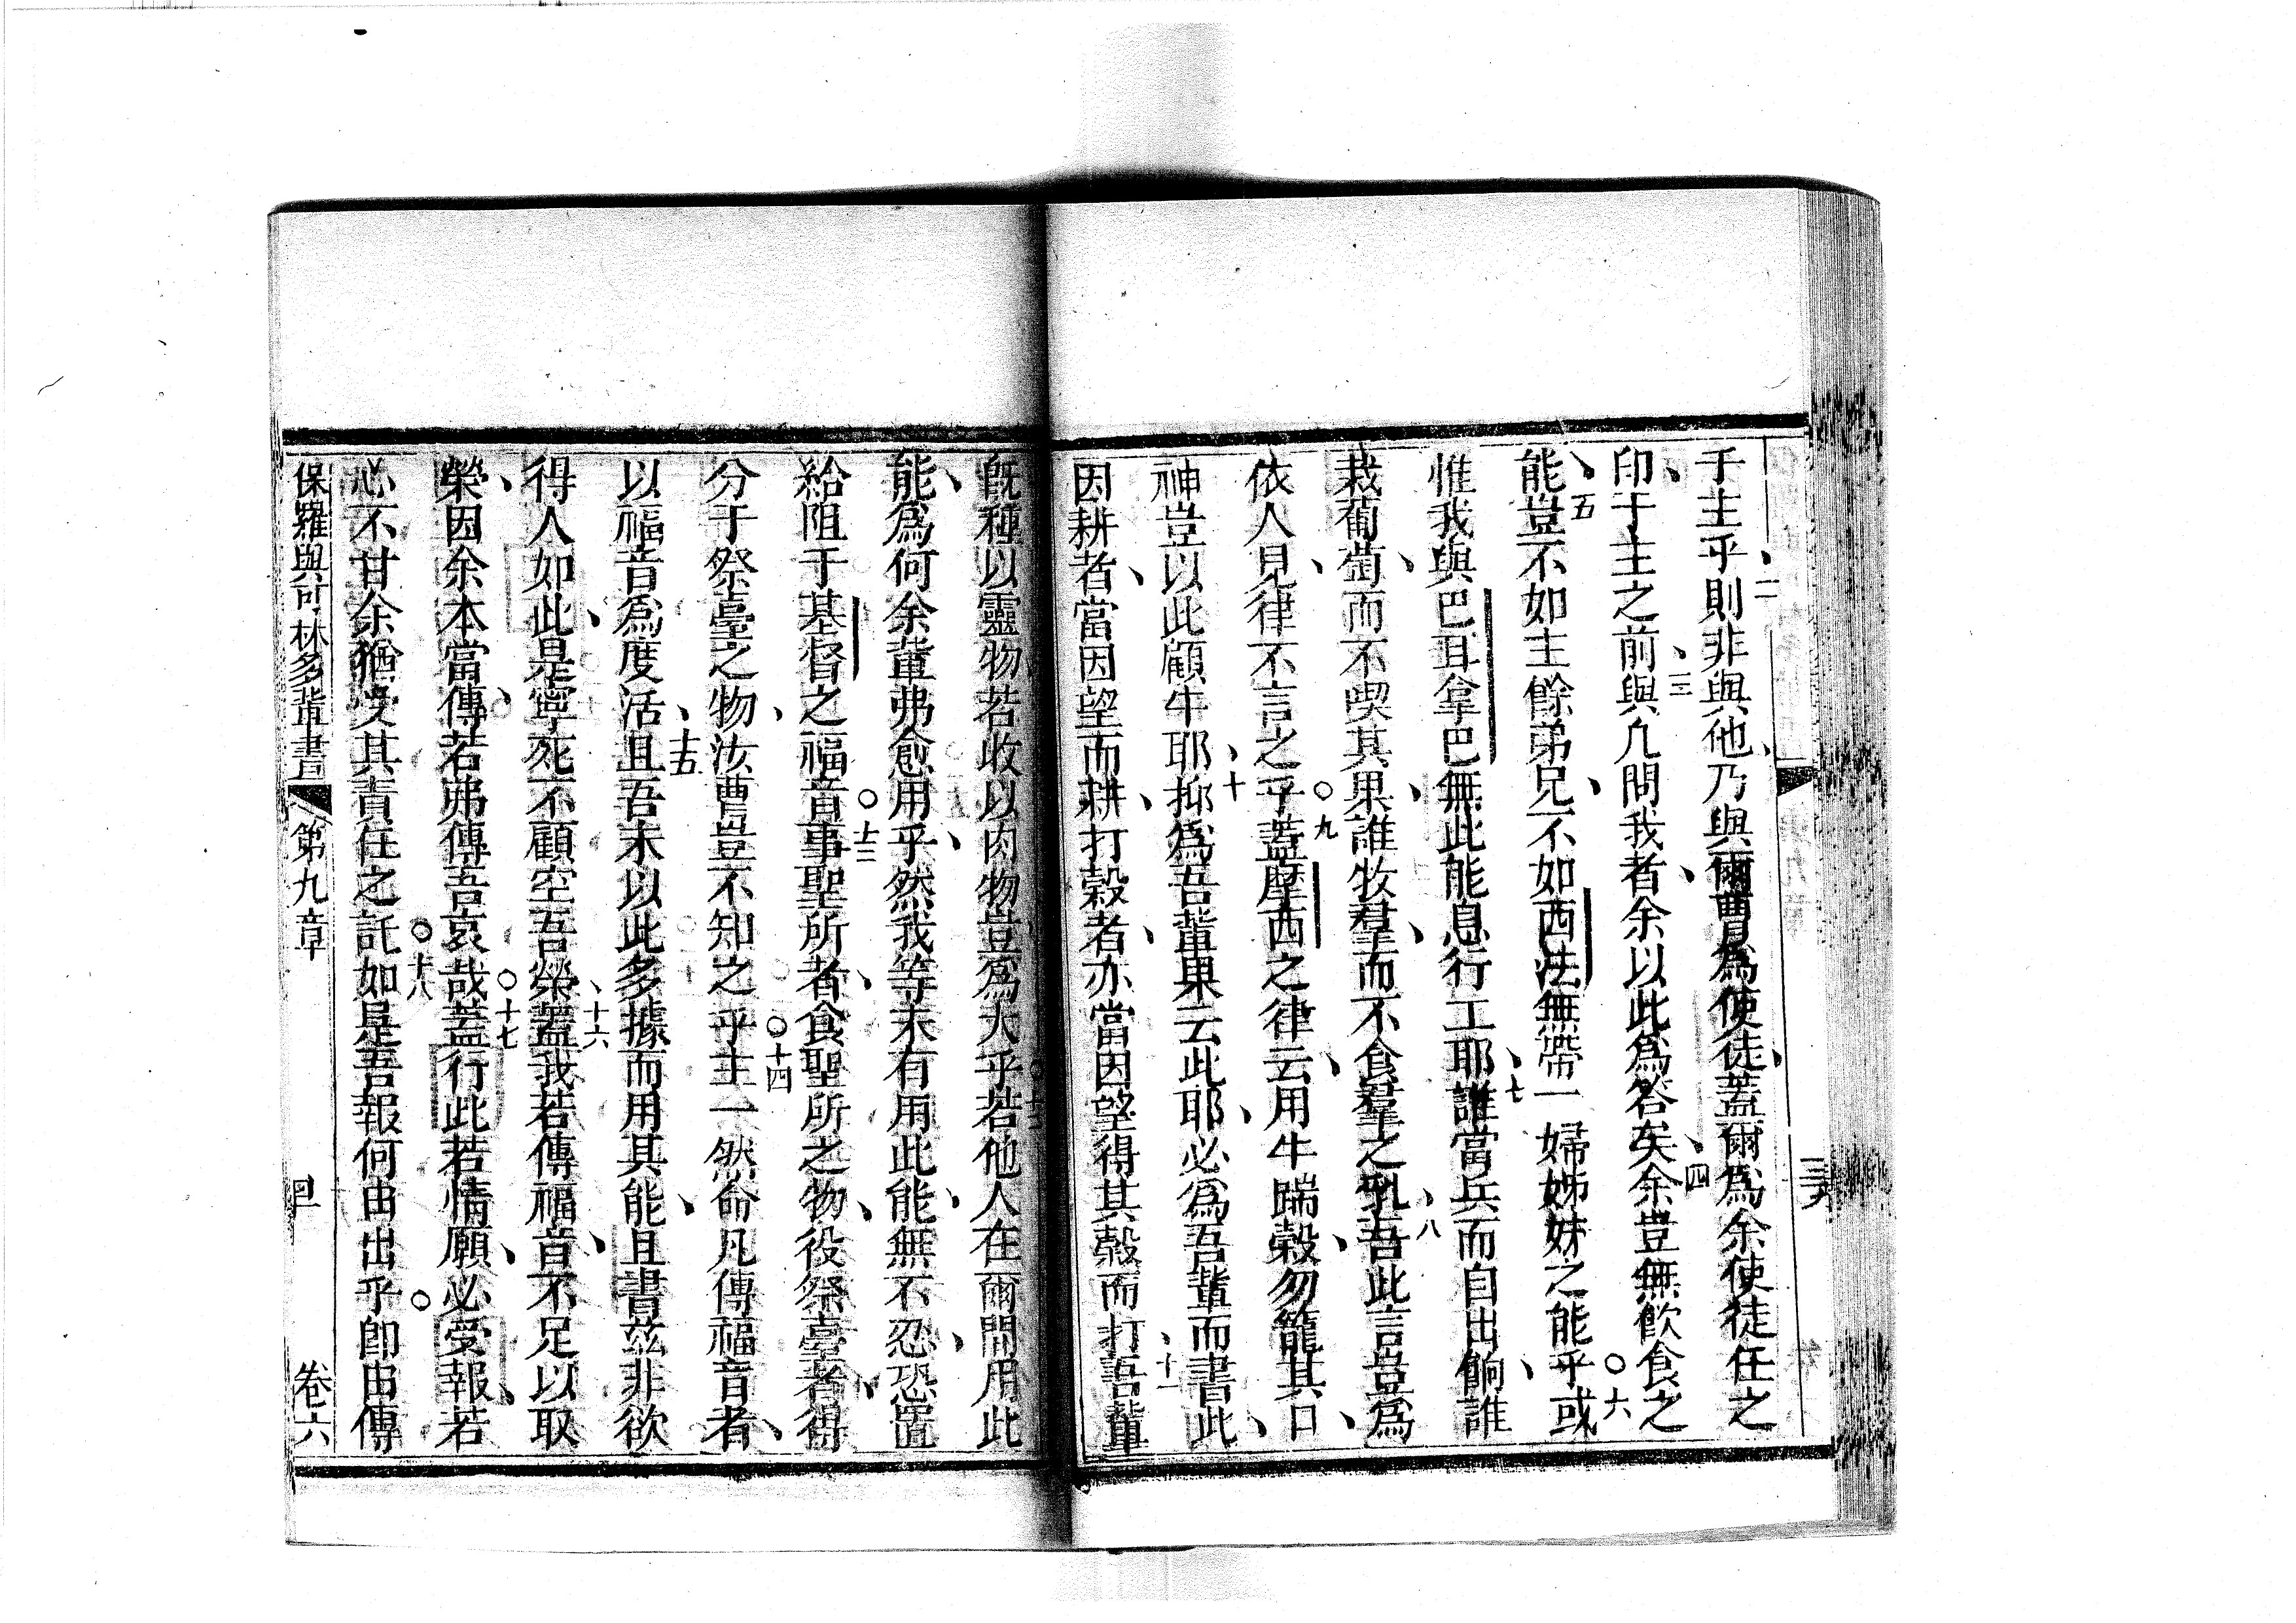 于主乎、二則非與他、乃與爾曹為使徒、蓋爾為余使徒任之
印、于主之前、三與凡問我者、余以此為答矣、四余豈無飲食之
能、五豈不如主餘弟兄、不如西法無帶一婦姊妹之能乎○六或
惟我與巴耳拿巴無此能息行工耶、七誰當兵而自出餉、誰
栽葡萄、而不喫其果、誰牧羣、而不食羣之乳、八吾此言豈為
依人見、律不言之乎○九蓋摩西之律云、用牛踹穀、勿籠其口、
神豈以此顧牛耶、十抑為吾輩果云此耶、必為吾輩而書此、
因耕者、當因望而耕、打穀者、亦當因望得其穀而打、十一吾輩
既種以靈物若收以肉物豈為大乎○十二若他人在爾間用此
能、為何余輩弗愈用乎、然我等未有用此能、無不忍、恐置
給阻于基督之福音○十三事聖所者、食聖所之物、役祭臺者、得
分于祭臺之物、汝曹豈不知之乎○十四主一然命凡傳福音者、
以福音為度活、十五且吾未以此多據而用其能、且書茲非欲
得人如此、是寧死不顧空吾榮、十六蓋我若傳福音、不足以取
榮、因余本當傳、若弗傳吾哀哉○十七蓋行此若情願、必受報、若
心不甘余猶受其責任之託○十八如是吾報何由出乎○即由傳
保羅與可林多輩書 第九章 四 卷六